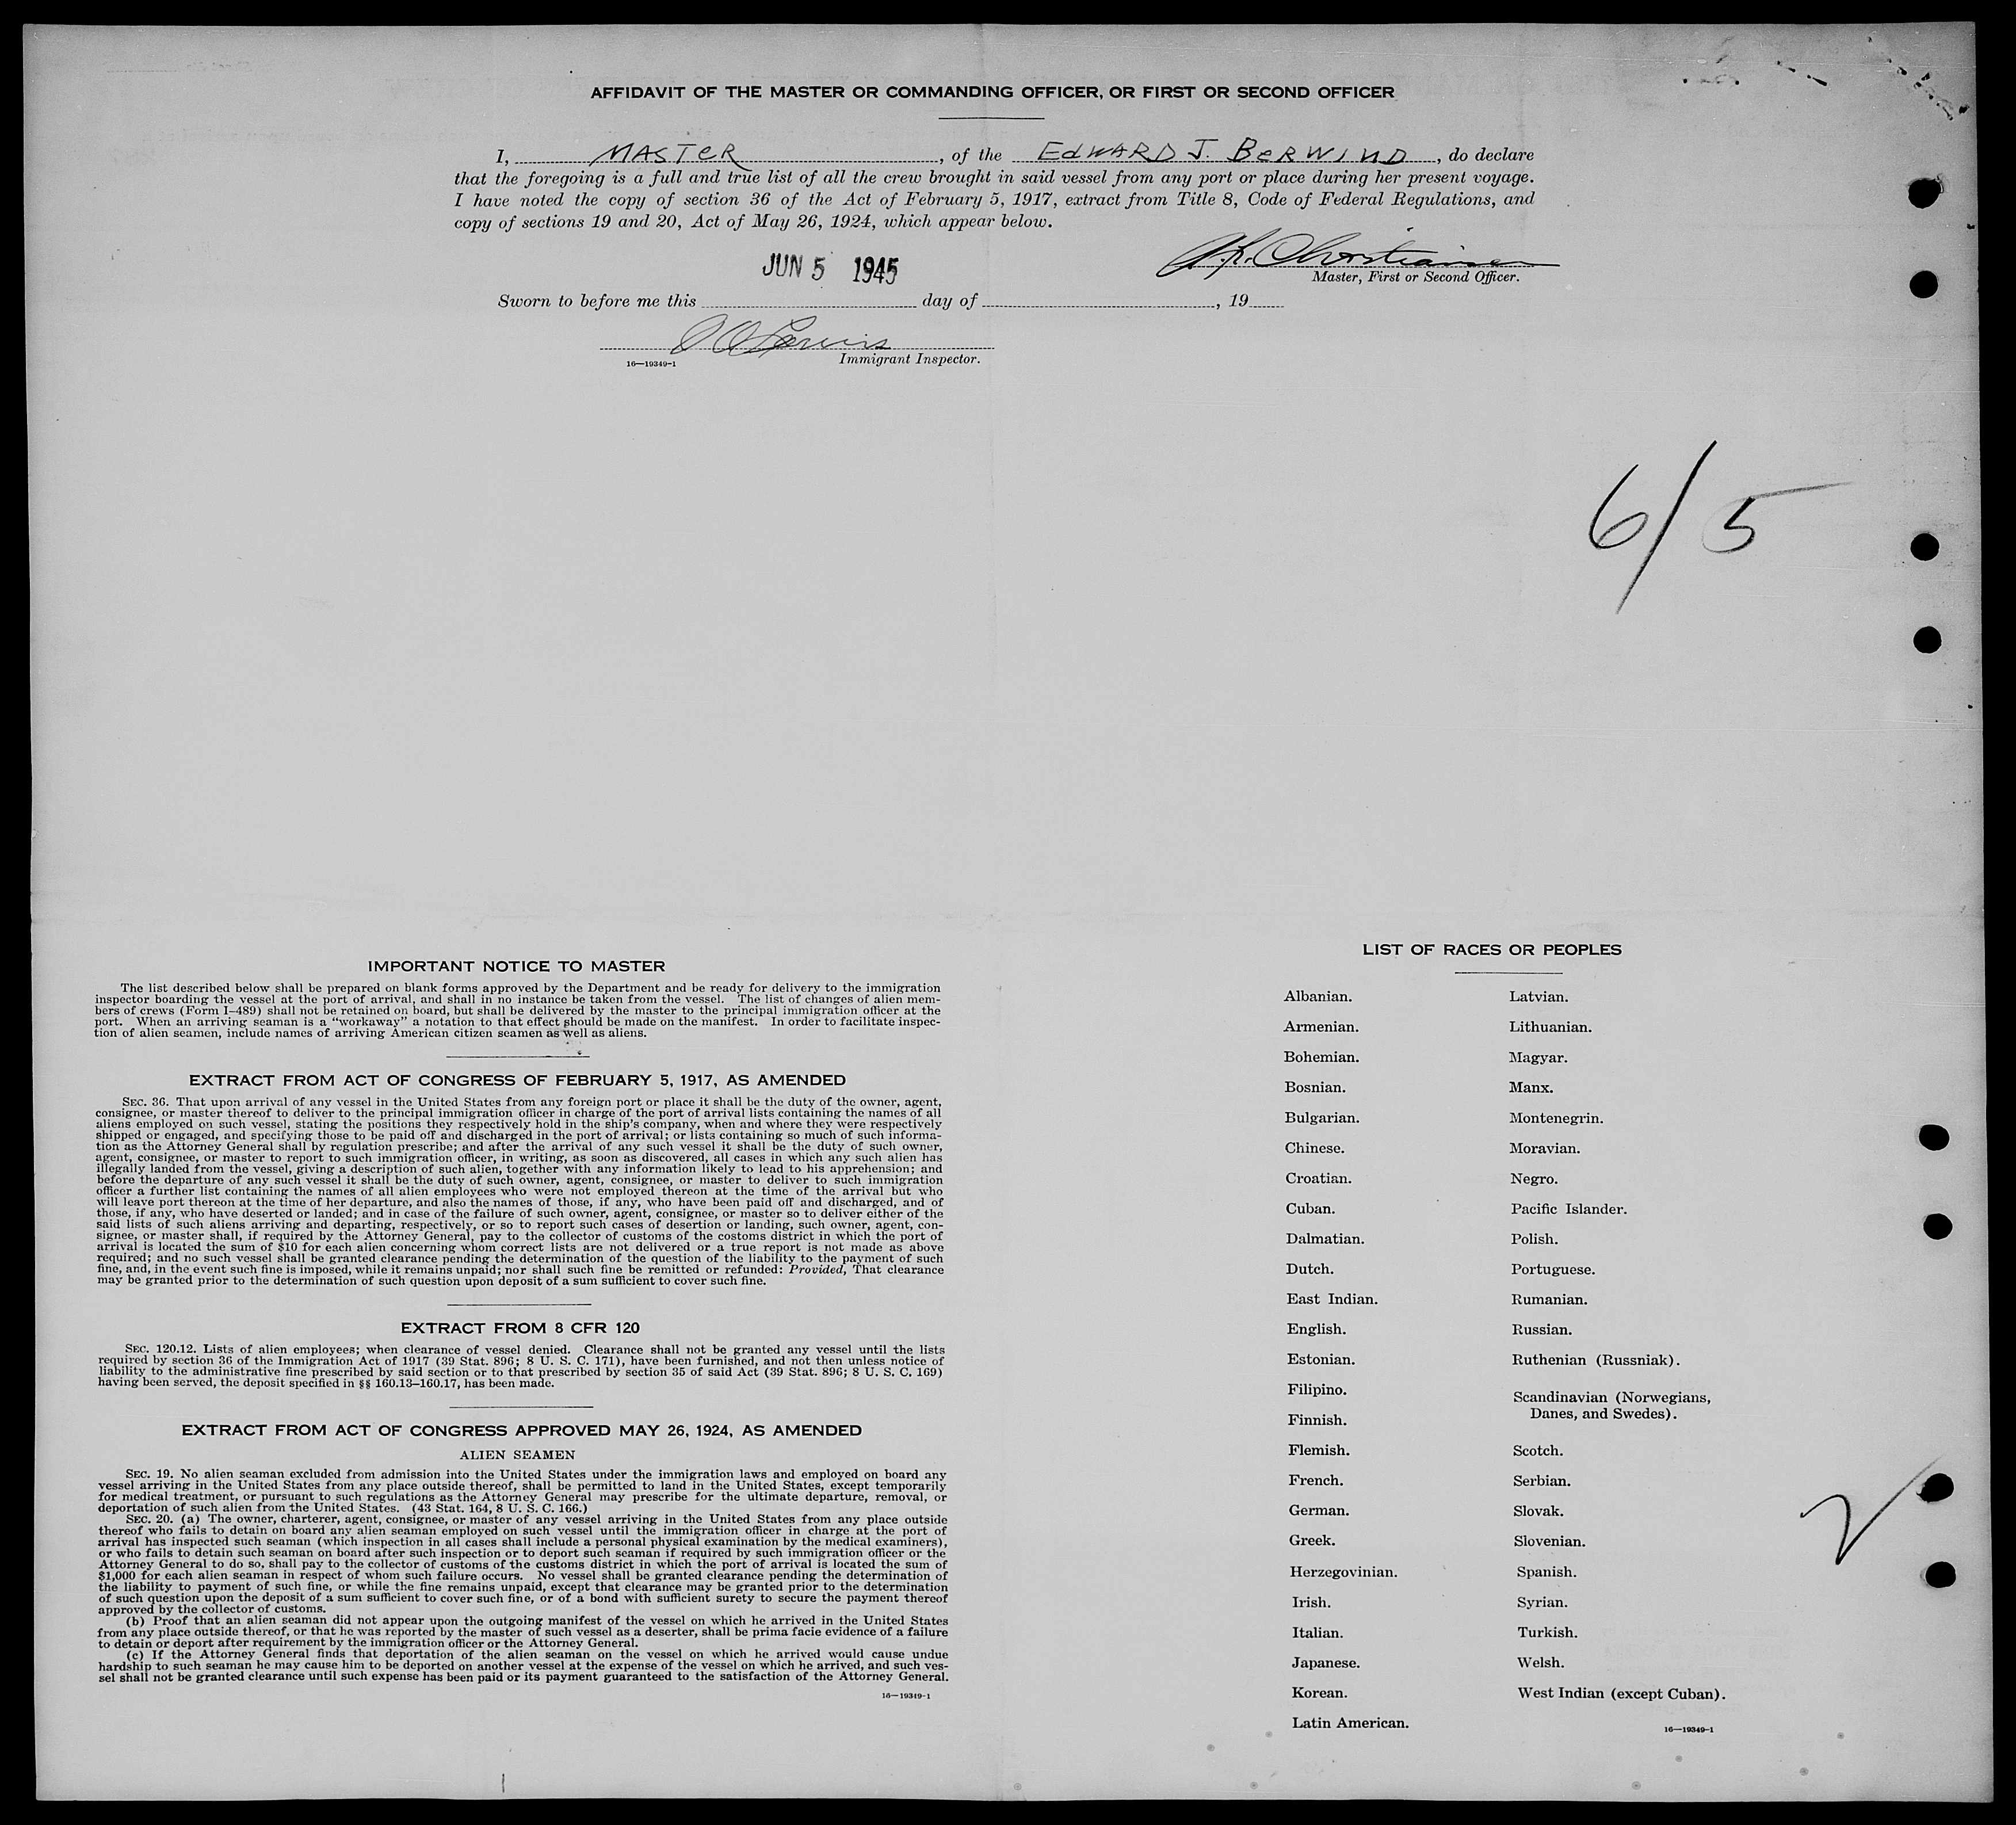 AFFIDAVIT OF THE MASTER OR COMMANDING OFFICER, OR FIRST OR SECOND OFFICER
I, MASTER, of the EdWARD J. BERWIND, do declare
that the foregoing is a full and true list of all the crew brought in said vessel from any port or place during her present voyage.
I have noted the copy of section 36 of the Act of February 5, 1917, extract from Title 8, Code of Federal Regulations, and
copy of sections 19 and 20, Act of May 26, 1924, which appear below.
JUN 5 1945
Christiansen
Master, First or Second Officer.
Sworn to before me this day of , 19
16—19349-1 Immigrant Inspector.
6/5
IMPORTANT NOTICE TO MASTER
The list described below shall be prepared on blank forms approved by the Department and be ready for delivery to the immigration
inspector boarding the vessel at the port of arrival, and shall in no instance be taken from the vessel. The list of changes of alien mem-
bers of crews (Form I–489) shall not be retained on board, but shall be delivered by the master to the principal immigration officer at the
port. When an arriving seaman is a “workaway” a notation to that effect should be made on the manifest. In order to facilitate inspec-
tion of alien seamen, include names of arriving American citizen seamen as well as aliens.
EXTRACT FROM ACT OF CONGRESS OF FEBRUARY 5, 1917, AS AMENDED
SEC. 36. That upon arrival of any vessel in the United States from any foreign port or place it shall be the duty of the owner, agent,
consignee, or master thereof to deliver to the principal immigration officer in charge of the port of arrival lists containing the names of all
aliens employed on such vessel, stating the positions they respectively hold in the ship's company, when and where they were respectively
shipped or engaged, and specifying those to be paid off and discharged in the port of arrival; or lists containing so much of such informa-
tion as the Attorney General shall by regulation prescribe; and after the arrival of any such vessel it shall be the duty of such owner,
agent, consignee, or master to report to such immigration officer, in writing, as soon as discovered, all cases in which any such alien has
illegally landed from the vessel, giving a description of such alien, together with any information likely to lead to his apprehension; and
before the departure of any such vessel it shall be the duty of such owner, agent, consignee, or master to deliver to such immigration
officer a further list containing the names of all alien employees who were not employed thereon at the time of the arrival but who
will leave port thereon at the time of her departure, and also the names of those, if any, who have been paid off and discharged, and of
those, if any, who have deserted or landed; and in case of the failure of such owner, agent, consignee, or master so to deliver either of the
said lists of such aliens arriving and departing, respectively, or so to report such cases of desertion or landing, such owner, agent, con-
signee, or master shall, if required by the Attorney General, pay to the collector of customs of the costoms district in which the port of
arrival is located the sum of $10 for each alien concerning whom correct lists are not delivered or a true report is not made as above
required; and no such vessel shall be granted clearance pending the determination of the question of the liability to the payment of such
fine, and, in the event such fine is imposed, while it remains unpaid; nor shall such fine be remitted or refunded: Provided, That clearance
may be granted prior to the determination of such question upon deposit of a sum sufficient to cover such fine.
EXTRACT FROM 8 CFR 120
SEC. 120.12. Lists of alien employees; when clearance of vessel denied. Clearance shall not be granted any vessel until the lists
required by section 36 of the Immigration Act of 1917 (39 Stat. 896; 8 U. S. C. 171), have been furnished, and not then unless notice of
liability to the administrative fine prescribed by said section or to that prescribed by section 35 of said Act (39 Stat. 896; 8 U. S. C. 169)
having been served, the deposit specified in §§ 160.13–160.17, has been made.
EXTRACT FROM ACT OF CONGRESS APPROVED MAY 26, 1924, AS AMENDED
ALIEN SEAMEN
SEC. 19. No alien seaman excluded from admission into the United States under the immigration laws and employed on board any
vessel arriving in the United States from any place outside thereof, shall be permitted to land in the United States, except temporarily
for medical treatment, or pursuant to such regulations as the Attorney General may prescribe for the ultimate departure, removal, or
deportation of such alien from the United States. (43 Stat. 164, 8 U. S. C. 166.)
SEC. 20. (a) The owner, charterer, agent, consignee, or master of any vessel arriving in the United States from any place outside
thereof who fails to detain on board any alien seaman employed on such vessel until the immigration officer in charge at the port of
arrival has inspected such seaman (which inspection in all cases shall include a personal physical examination by the medical examiners),
or who fails to detain such seaman on board after such inspection or to deport such seaman if required by such immigration officer or the
Attorney General to do so, shall pay to the collector of customs of the customs district in which the port of arrival is located the sum of
$1,000 for each alien seaman in respect of whom such failure occurs. No vessel shall be granted clearance pending the determination of
the liability to payment of such fine, or while the fine remains unpaid, except that clearance may be granted prior to the determination
of such question upon the deposit of a sum sufficient to cover such fine, or of a bond with sufficient surety to secure the payment thereof
approved by the collector of customs.
(b) Proof that an alien seaman did not appear upon the outgoing manifest of the vessel on which he arrived in the United States
from any place outside thereof, or that he was reported by the master of such vessel as a deserter, shall be prima facie evidence of a failure
to detain or deport after requirement by the immigration officer or the Attorney General.
(c) If the Attorney General finds that deportation of the alien seaman on the vessel on which he arrived would cause undue
hardship to such seaman he may cause him to be deported on another vessel at the expense of the vessel on which he arrived, and such ves-
sel shall not be granted clearance until such expense has been paid or its payment guaranteed to the satisfaction of the Attorney General.
16—19349-1
LIST OF RACES OR PEOPLES
Albanian.
Armenian.
Bohemian.
Bosnian.
Bulgarian.
Chinese.
Croatian.
Cuban.
Dalmatian.
Dutch.
East Indian.
English.
Estonian.
Filipino.
Finnish.
Flemish.
French.
German.
Greek.
Herzegovinian.
Irish.
Italian.
Japanese.
Korean.
Latin American.
Latvian.
Lithuanian.
Magyar.
Manx.
Montenegrin.
Moravian.
Negro.
Pacific Islander.
Polish.
Portuguese.
Rumanian.
Russian.
Ruthenian (Russniak).
Scandinavian (Norwegians,
Danes, and Swedes).
Scotch.
Serbian.
Slovak.
Slovenian.
Spanish.
Syrian.
Turkish.
Welsh.
West Indian (except Cuban).
16—19349-1